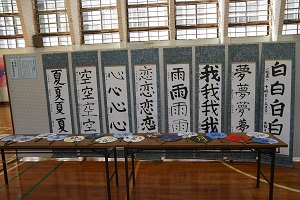 夏夏夏夏
空空空空
心心心心
恋恋恋
雨雨雨
我我我我
夢夢夢夢
白白白白